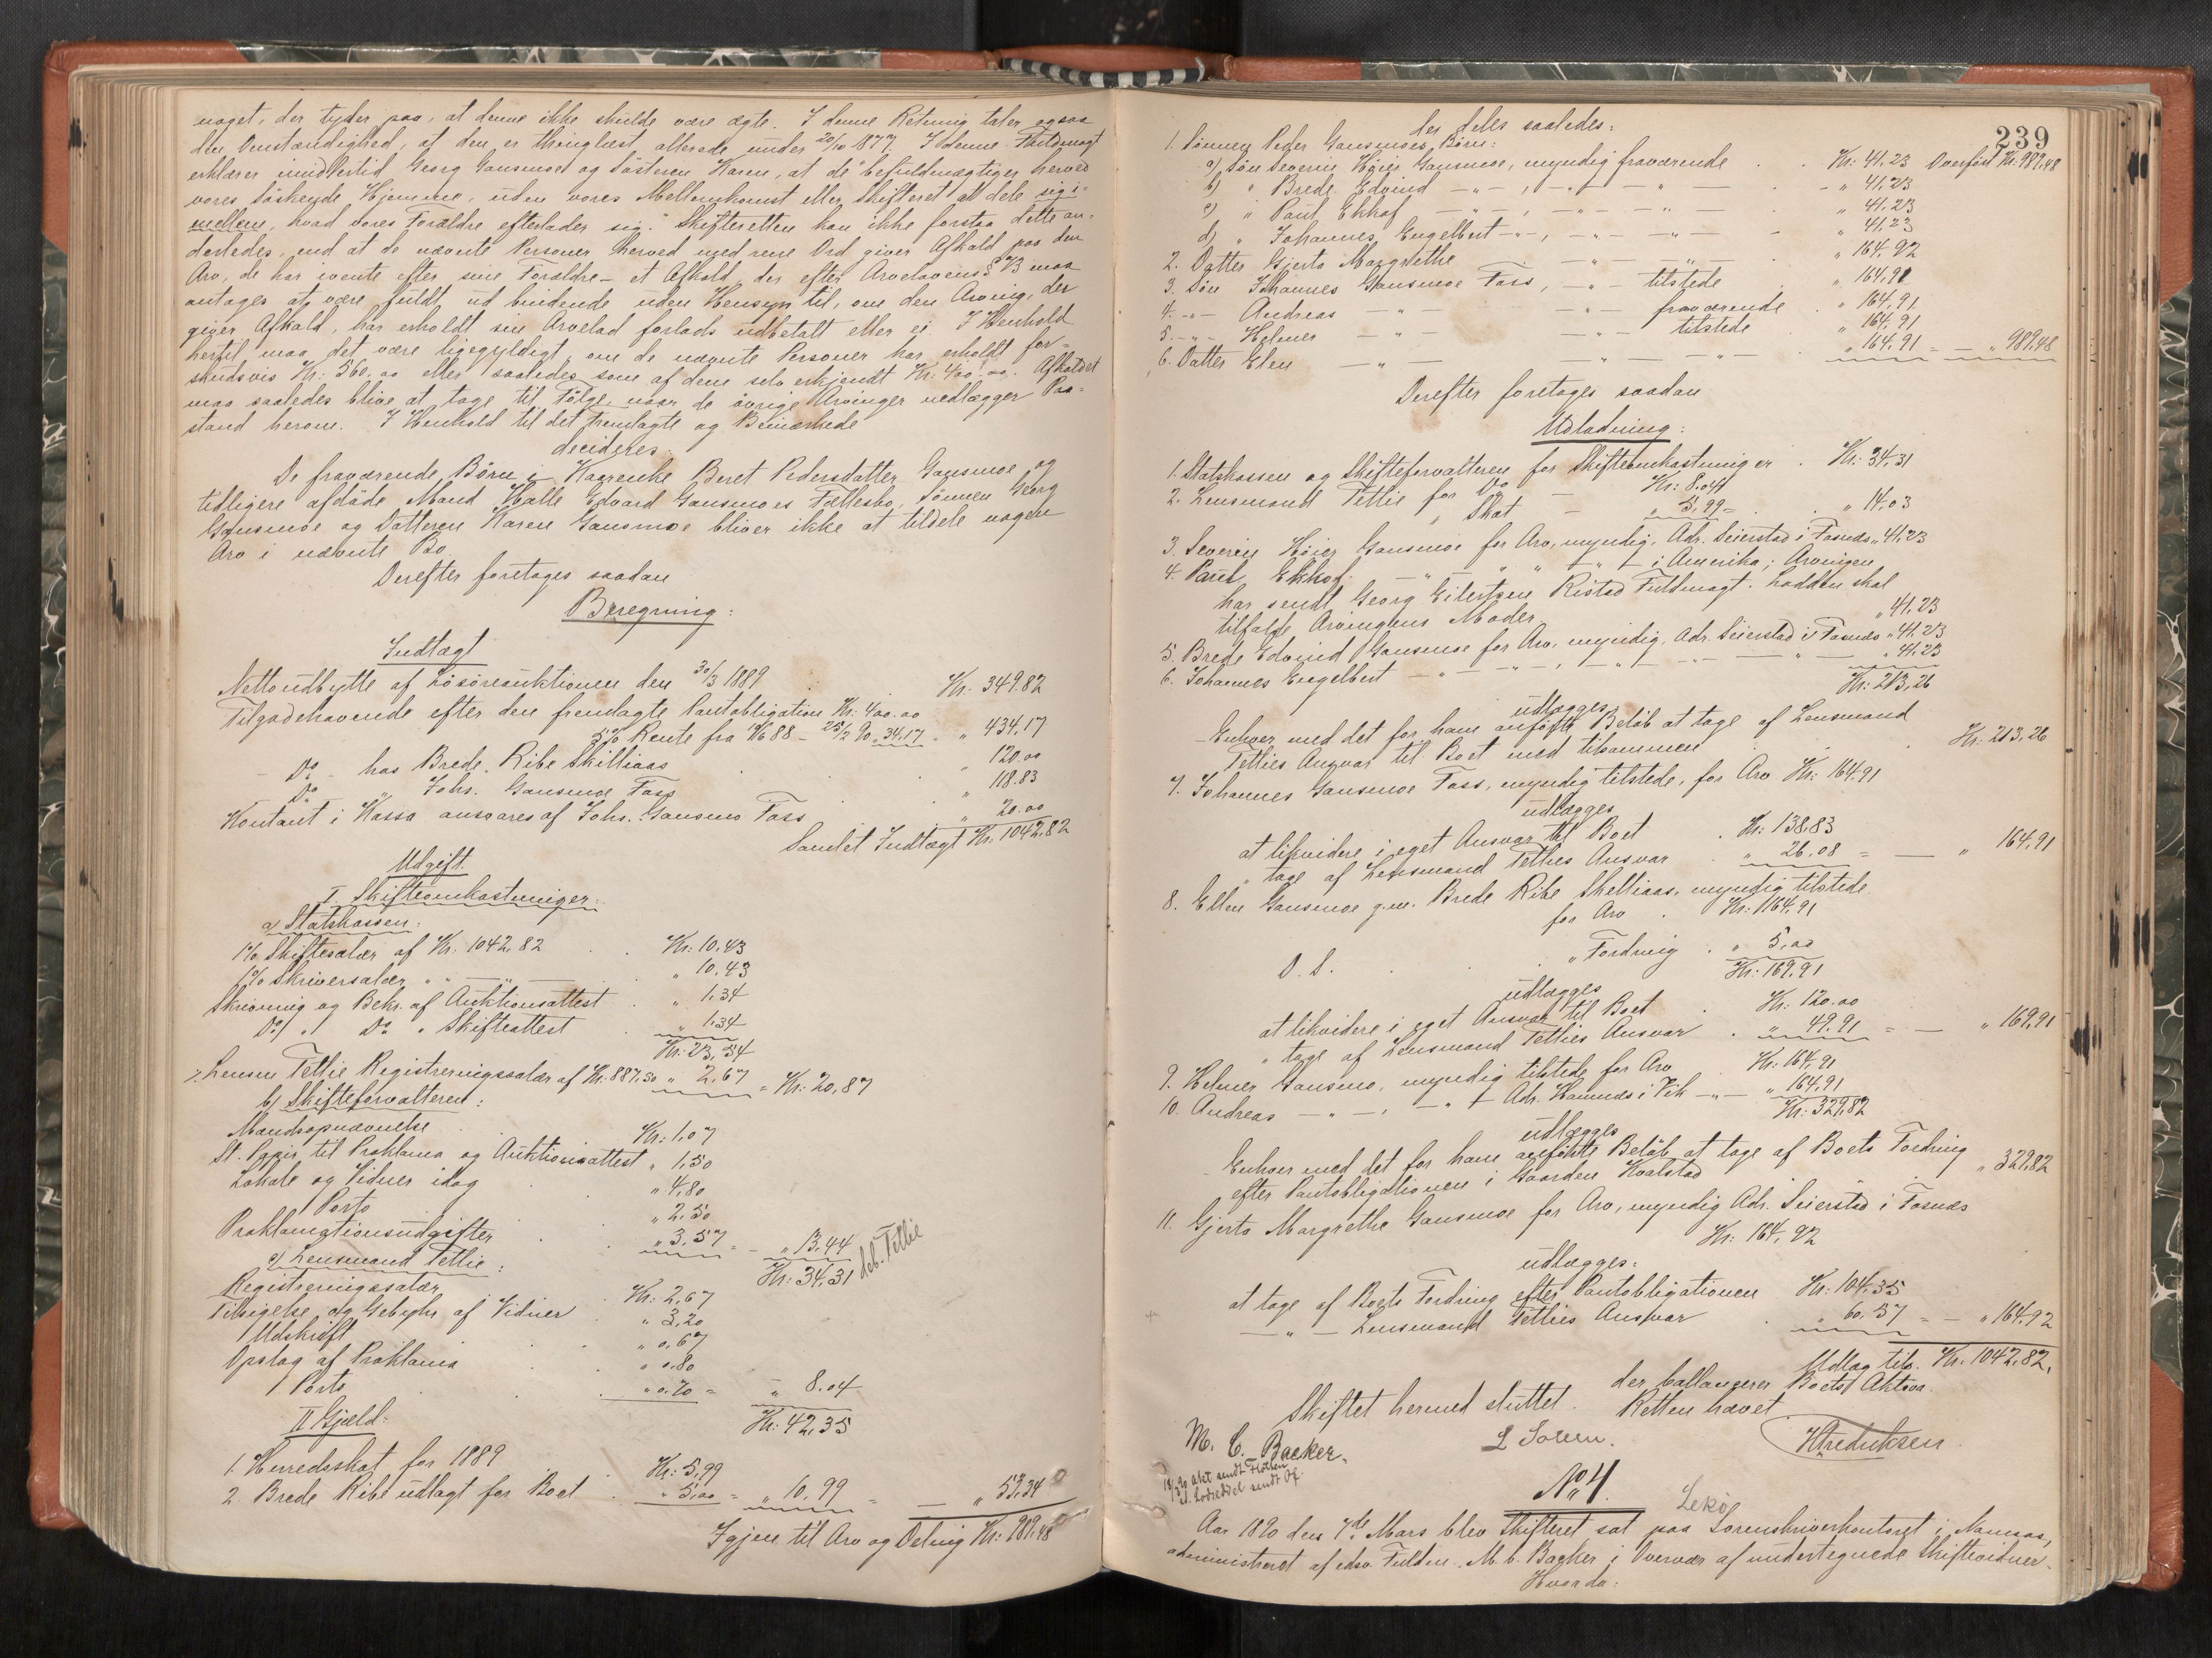 noget, der tyder paa, at denne ikke skulde være ægte. I denne Retning taler ogsaa
den Omstændighed, at den er thinglæst allerede under 20/10 1877. I denne Fuldmagt
erklærer imidlertid Georg Gansmoe og Søsteren Karen, at de "befuldmægtiger herved
vores Søskende Hjemme, uden vores Mellemkomst eller Skifteret at dele sig i-
mellem, hvad vores Forældre efterlader sig." Skifteretten kan ikke forstaa dette an-
derledes, end at de nævnte Personer herved med rene Ord giver Afkald paa den
Arv, de har ivente efter sine Forældre – et Afkald, der efter Arvelovens § 73 maa
antages at være fuldt ud bindende uden Hensyn til, om den Arving, der
giver Afkald, har erholdt sin Arvelod forlods udbetalt eller ei. I Henhold
hertil maa det være ligegyldigt, om de nævnte Personer har erholdt for-
skudsvis Kr: 560,00 eller saaledes som af dem selv erkjendt Kr: 400.00. Afkaldet
maa saaledes blive at tage til Følge, naar de øvrige Arvinger nedlægger Paa-
stand herom. I Henhold til det fremlagte og Bemærkede
decideres:
De fraværende Børn i Beret Pedersdatter Gansmoe og
tidligere afdøde Mand Halle Edvard Gansmoes Fællesbo, Sønnen Georg
Gansmoe og Datteren Karen Gansmoe bliver ikke at tildele nogen
Arv i nævnte Bo.
Derefter foretoges saadan
Beregning:
Indtægt
Nettoudbytte af Løsøreauktionen den 30/3 1889 Kr. 349.82
Tilgodehavende efter den fremlagte Pantobligation Kr: 400.00
5% Rente fra 12/6 88 – 25/2 90 " 34.17 " 434,17
– Do – hos Brede Ribe Skilliaas " 120.00
Do " Johs. Gansmoe Foss " 118.83
Kontant i Kassa ansvares af Johs. Gansmo Foss " 20.00
Samlet Indtægt Kr. 1042.82
Udgift.
I. Skifteomkostninger:
a) Statskassen:
1% Skiftesalær af Kr: 1042,82 Kr: 10.43
1% Skriversalær " – " – " 10.43
Skrivning og Bekr. af Auktionsattest " 1.34
Do " Do " Skifteattest " 1.34
Kr: 23,54
÷ Lensm Tetlie Registreringssalær af Kr: 887,50 " 2,67 = Kr: 20,87
b) Skifteforvalteren:
Mandsopnævnelse Kr: 1.07
St. Papir til Proklama og Auktionsattest " 1,50
Lokale og Vidner idag " 4,80
Porto " 2.50
Proklamationsudgifter " 3,57 = – " 13,44
Kr: 34,31 deb. Tetlie
c) Lensmand Tetlie:
Registreringssalær Kr: 2,67
Tilsigelse og Gebyhr af Vidner " 3,20
Udskrift " 0,67
Opslag af Proklama " 0.80
Porto " 0.70 = " 8.04
Kr: 42,35
II Gjæld:
1. Herredsskat for 1889 Kr: 5,99
2. Brede Ribe udlagt for Boet " 5,00 = " 10,99 = – " 53,34
Igjen til Arv og Deling Kr: 989,48
239
der deles saaledes:
1. Sønnen Peder Gansmoes Børn: Overført Kr. 989,48
a) Søn Severin Høier Gansmoe, myndig fraværende Kr: 41.23
b) " Brede Edvind – " – , – " – " – " 41,23
c) " Paul Ekhof – " – , – " – " – " 41.23
d) " Johannes Engelbert – " – , – " – " – " 41,23
2. Datter Gjerto Margrethe – " – " – " 164,92
3. Søn Johannes Gansmoe Foss, – " – tilstede " 164,91
4. – " – Andreas – " – – " – fraværende " 164,91
5. – " – Helmer – " – – " – tilstede " 164,91
6. Datter Elen – " – – " – – " – " 164.91 = – " 989.48
Derefter foretoges saadan
Udlodning:
1. Statskassen og Skifteforvalteren for Skifteomkostninger Kr: 34,31
2. Lensmand Tetlie for Do – Kr: 8.04
" Skat – " 5,99 = " 14,03
3. Severin Høier Gansmoe for Arv, myndig, Adr. Seierstad i Fosnæs " 41,23
4. Paul Ekhof – " – " " – " – i Amerika; Arvingen
har sendt Georg Eilertsen Ristad Fuldmagt. Lodden skal
tilfalde Arvingens Moder " 41,23
5. Brede Edvind Gansmoe for Arv, myndig, Adr. Seierstad i Fosnæs " 41.23
6. Johannes Engelbert – " – " – , – " – " – " – " 41,23
Kr: 213,26
udlægges
Enhver med det for ham anførte Beløb at tage af Lensmand
Tetlies Ansvar til Boet med tilsammen Kr: 213,26
7. Johannes Gansmoe Foss, myndig tilstede, for Arv Kr: 164,91
udlægges
at likvidere i eget Ansvar til Boet Kr: 138,83
" tage af Lensmand Tetlies Ansvar " 26.08 = – " 164,91
8. Ellen Gansmoe g.m. Brede Ribe Skilliaas, myndig tilstede
for Arv Kr: 164,91
D. S. " Fordring " 5,00
Kr: 169,91
udlægges
at likvidere i eget Ansvar til Boet Kr: 120.00
" tage af Lensmand Tetlies Ansvar " 49.91 = – " 169,91
9. Helmer Gansmo, myndig tilstede for Arv Kr: 164,91
10. Andreas – " – , – " – Adr. Hamnæs i Vik – " – " 164,91
Kr: 329,82
udlægges
Enhver med det for ham anførte Beløb at tage af Boets Fordring
efter Pantobligationen i Gaarden Kvalstad " 329,82
11. Gjerto Margrethe Gansmoe for Arv, myndig Adr. Seierstad i Fosnæs
Kr: 164,92
udlægges:
at tage af Boets Fordring efter Pantobligationen Kr: 104,35
– " – Lensmand Tetlies Ansvar " 60,57 = – " 164,92
Udlæg tils. Kr. 1042.82,
der ballancerer Boets Aktiva.
Skiftet hermed sluttet. Retten hævet
M. C. Backer. L Solem. HFredriksen
No 4.
Lekø
Aar 1890 den 7de Mars blev Skifteret sat paa Sorenskriverkontoret i Namsos,
administreret af edsv. Fuldm. M. C. Backer i Overvær af undertegnede Skiftevidner.
Hvorda: